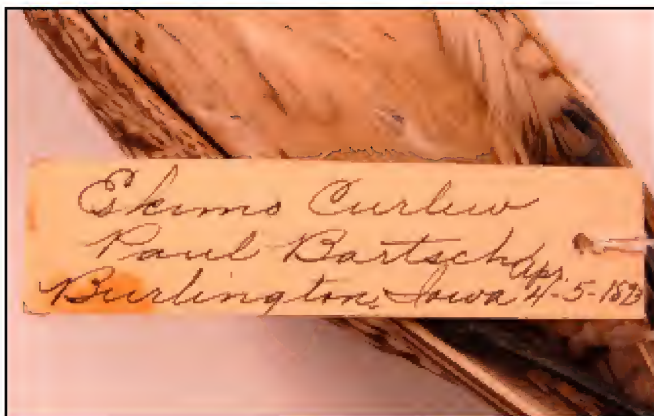 Eskimo Curlew
Paul Bartsch
Burlington, Iowa Apr. 4-5-1893